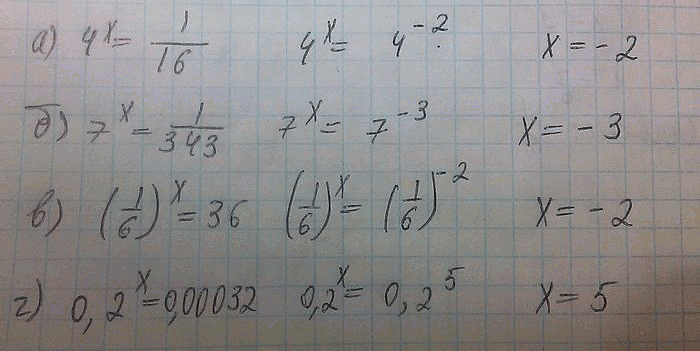 а) 4^x = 1/16 4^x = 4^-2. x = -2
б) 7^x = 1/343 7^x = 7^-3 x = -3
в) (1/6)^x = 36 (1/6)^x = (1/6)^-2 x = -2
г) 0,2^x = 0,00032 0,2^x = 0,2^5 x = 5